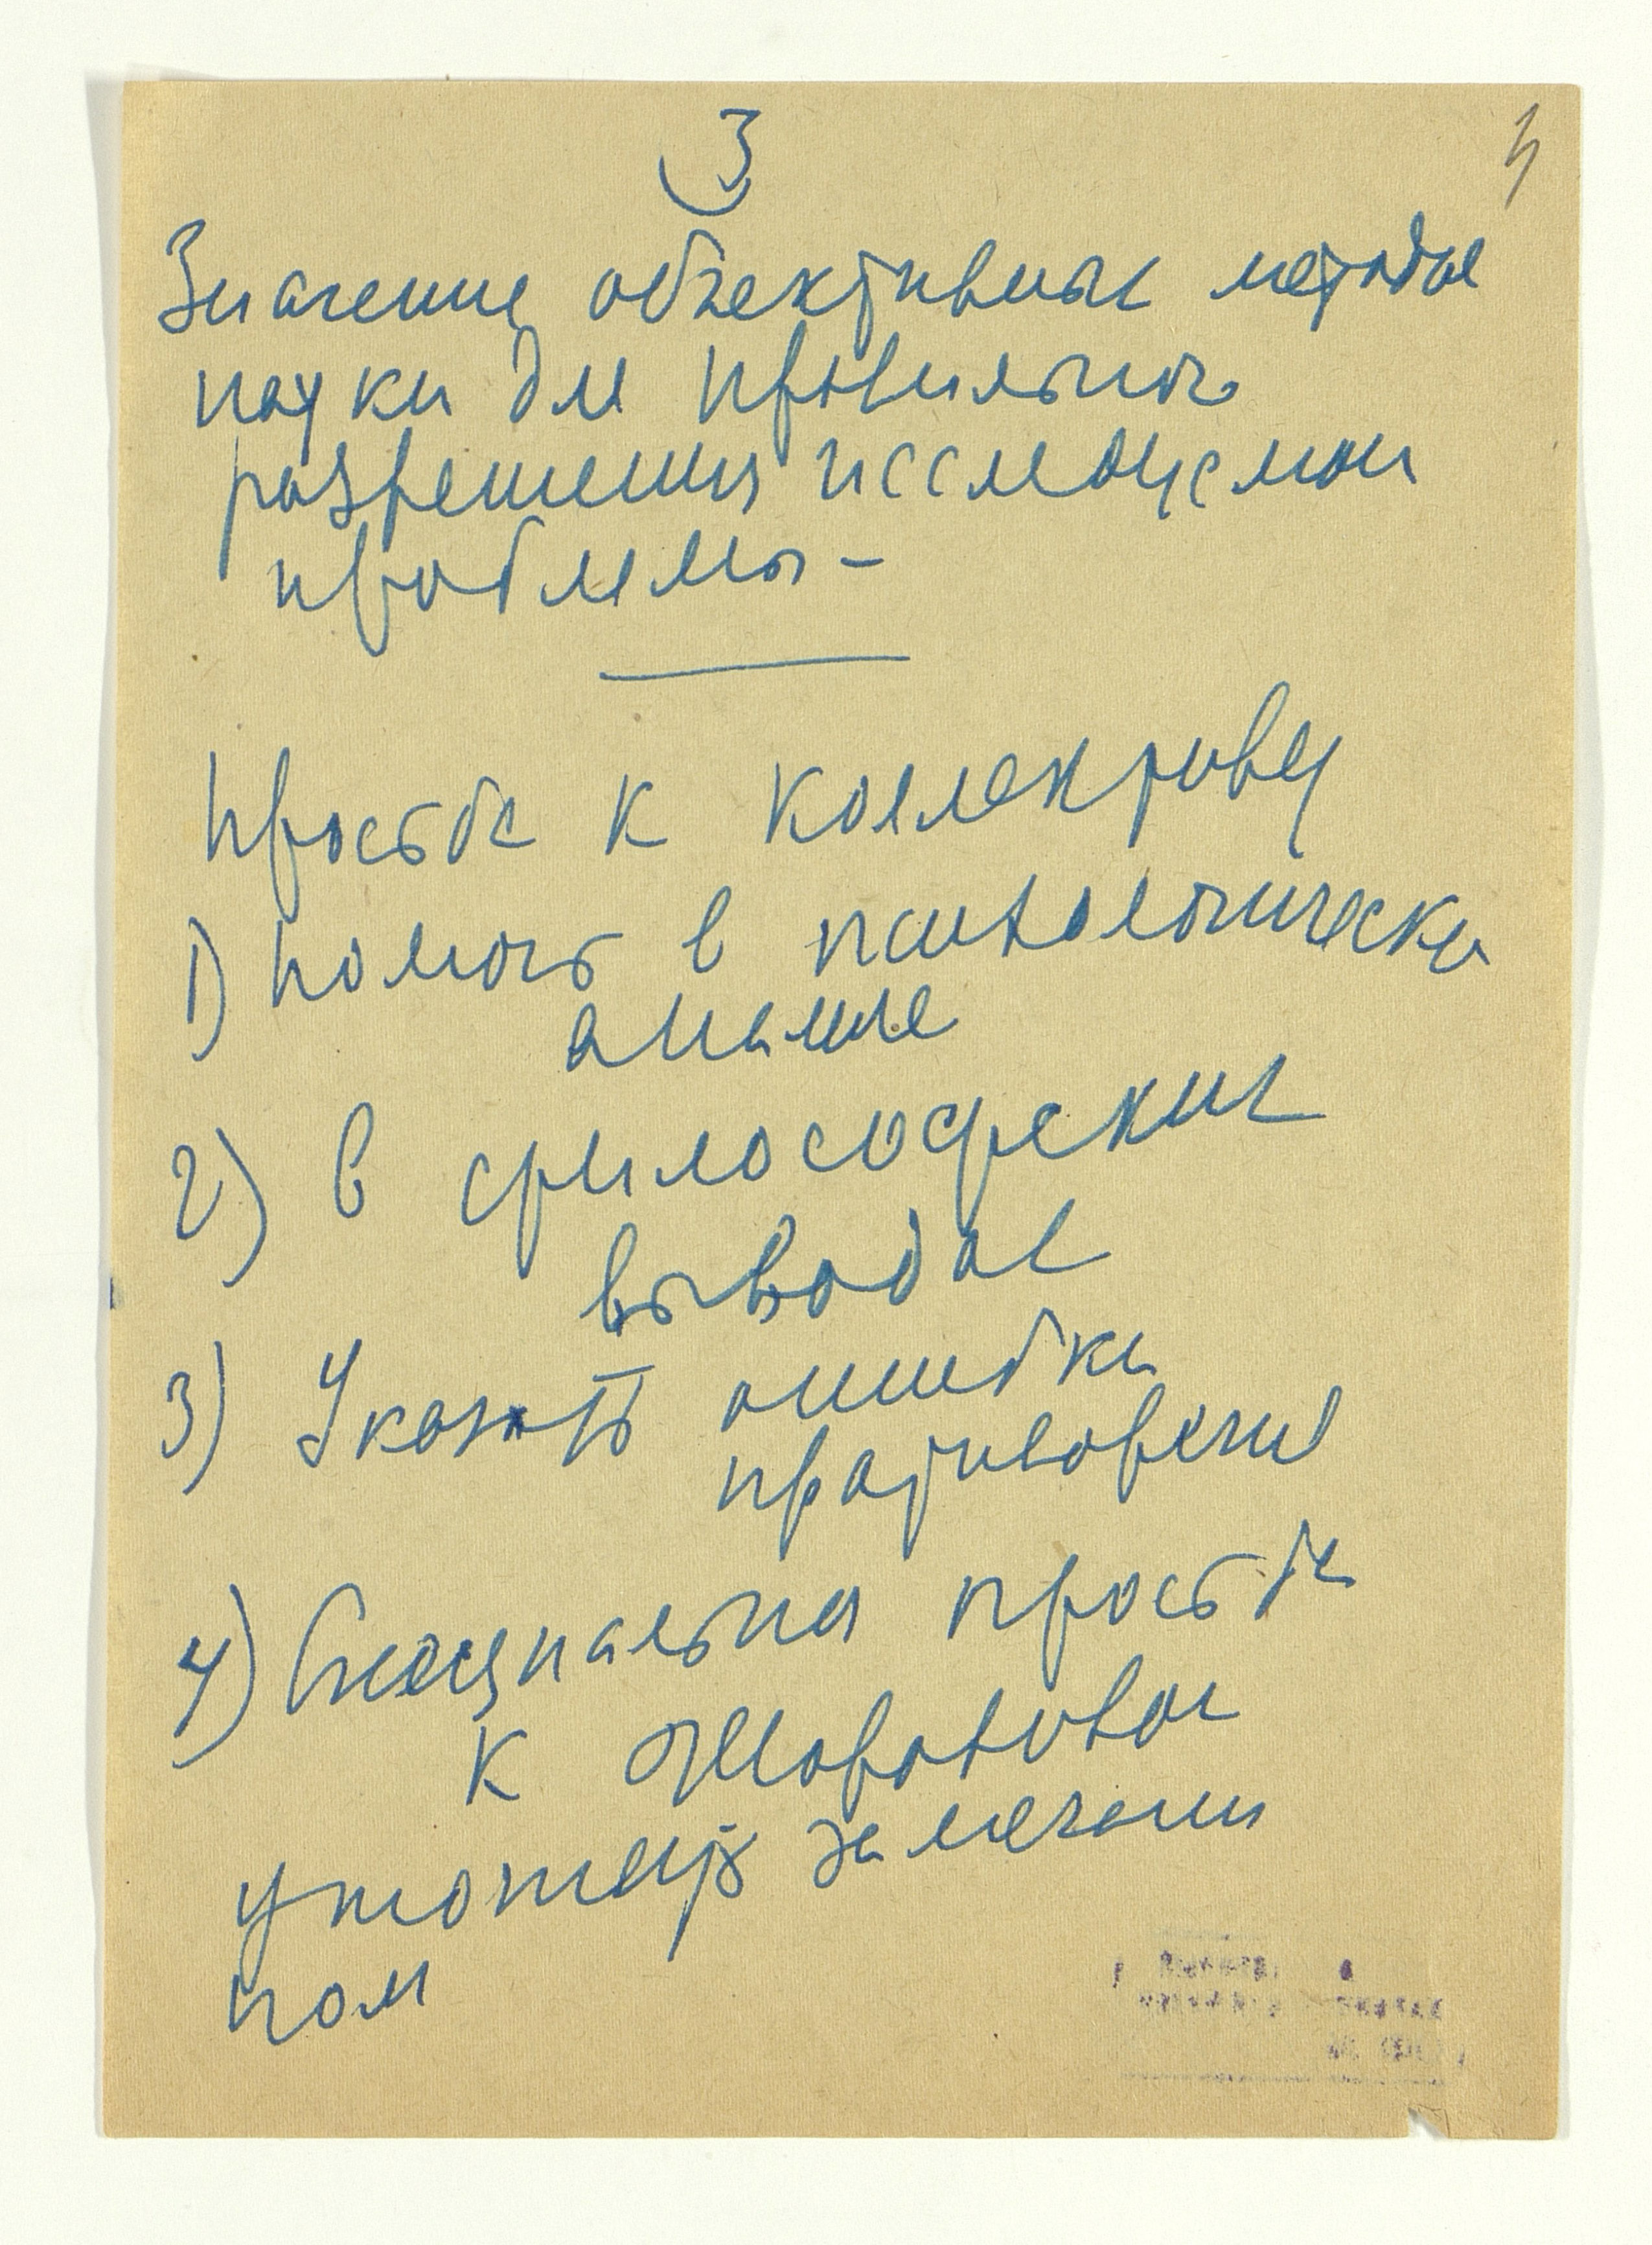 3
Значение объективных методов
науки для правильного
разрешения исследуемой
проблемы –
Просьба к коллективу
1) помочь в психологическ
анализе
2) в философских
выводах
3) Указать ошибки
противоречия
4) Специальная просьба
к
замечани